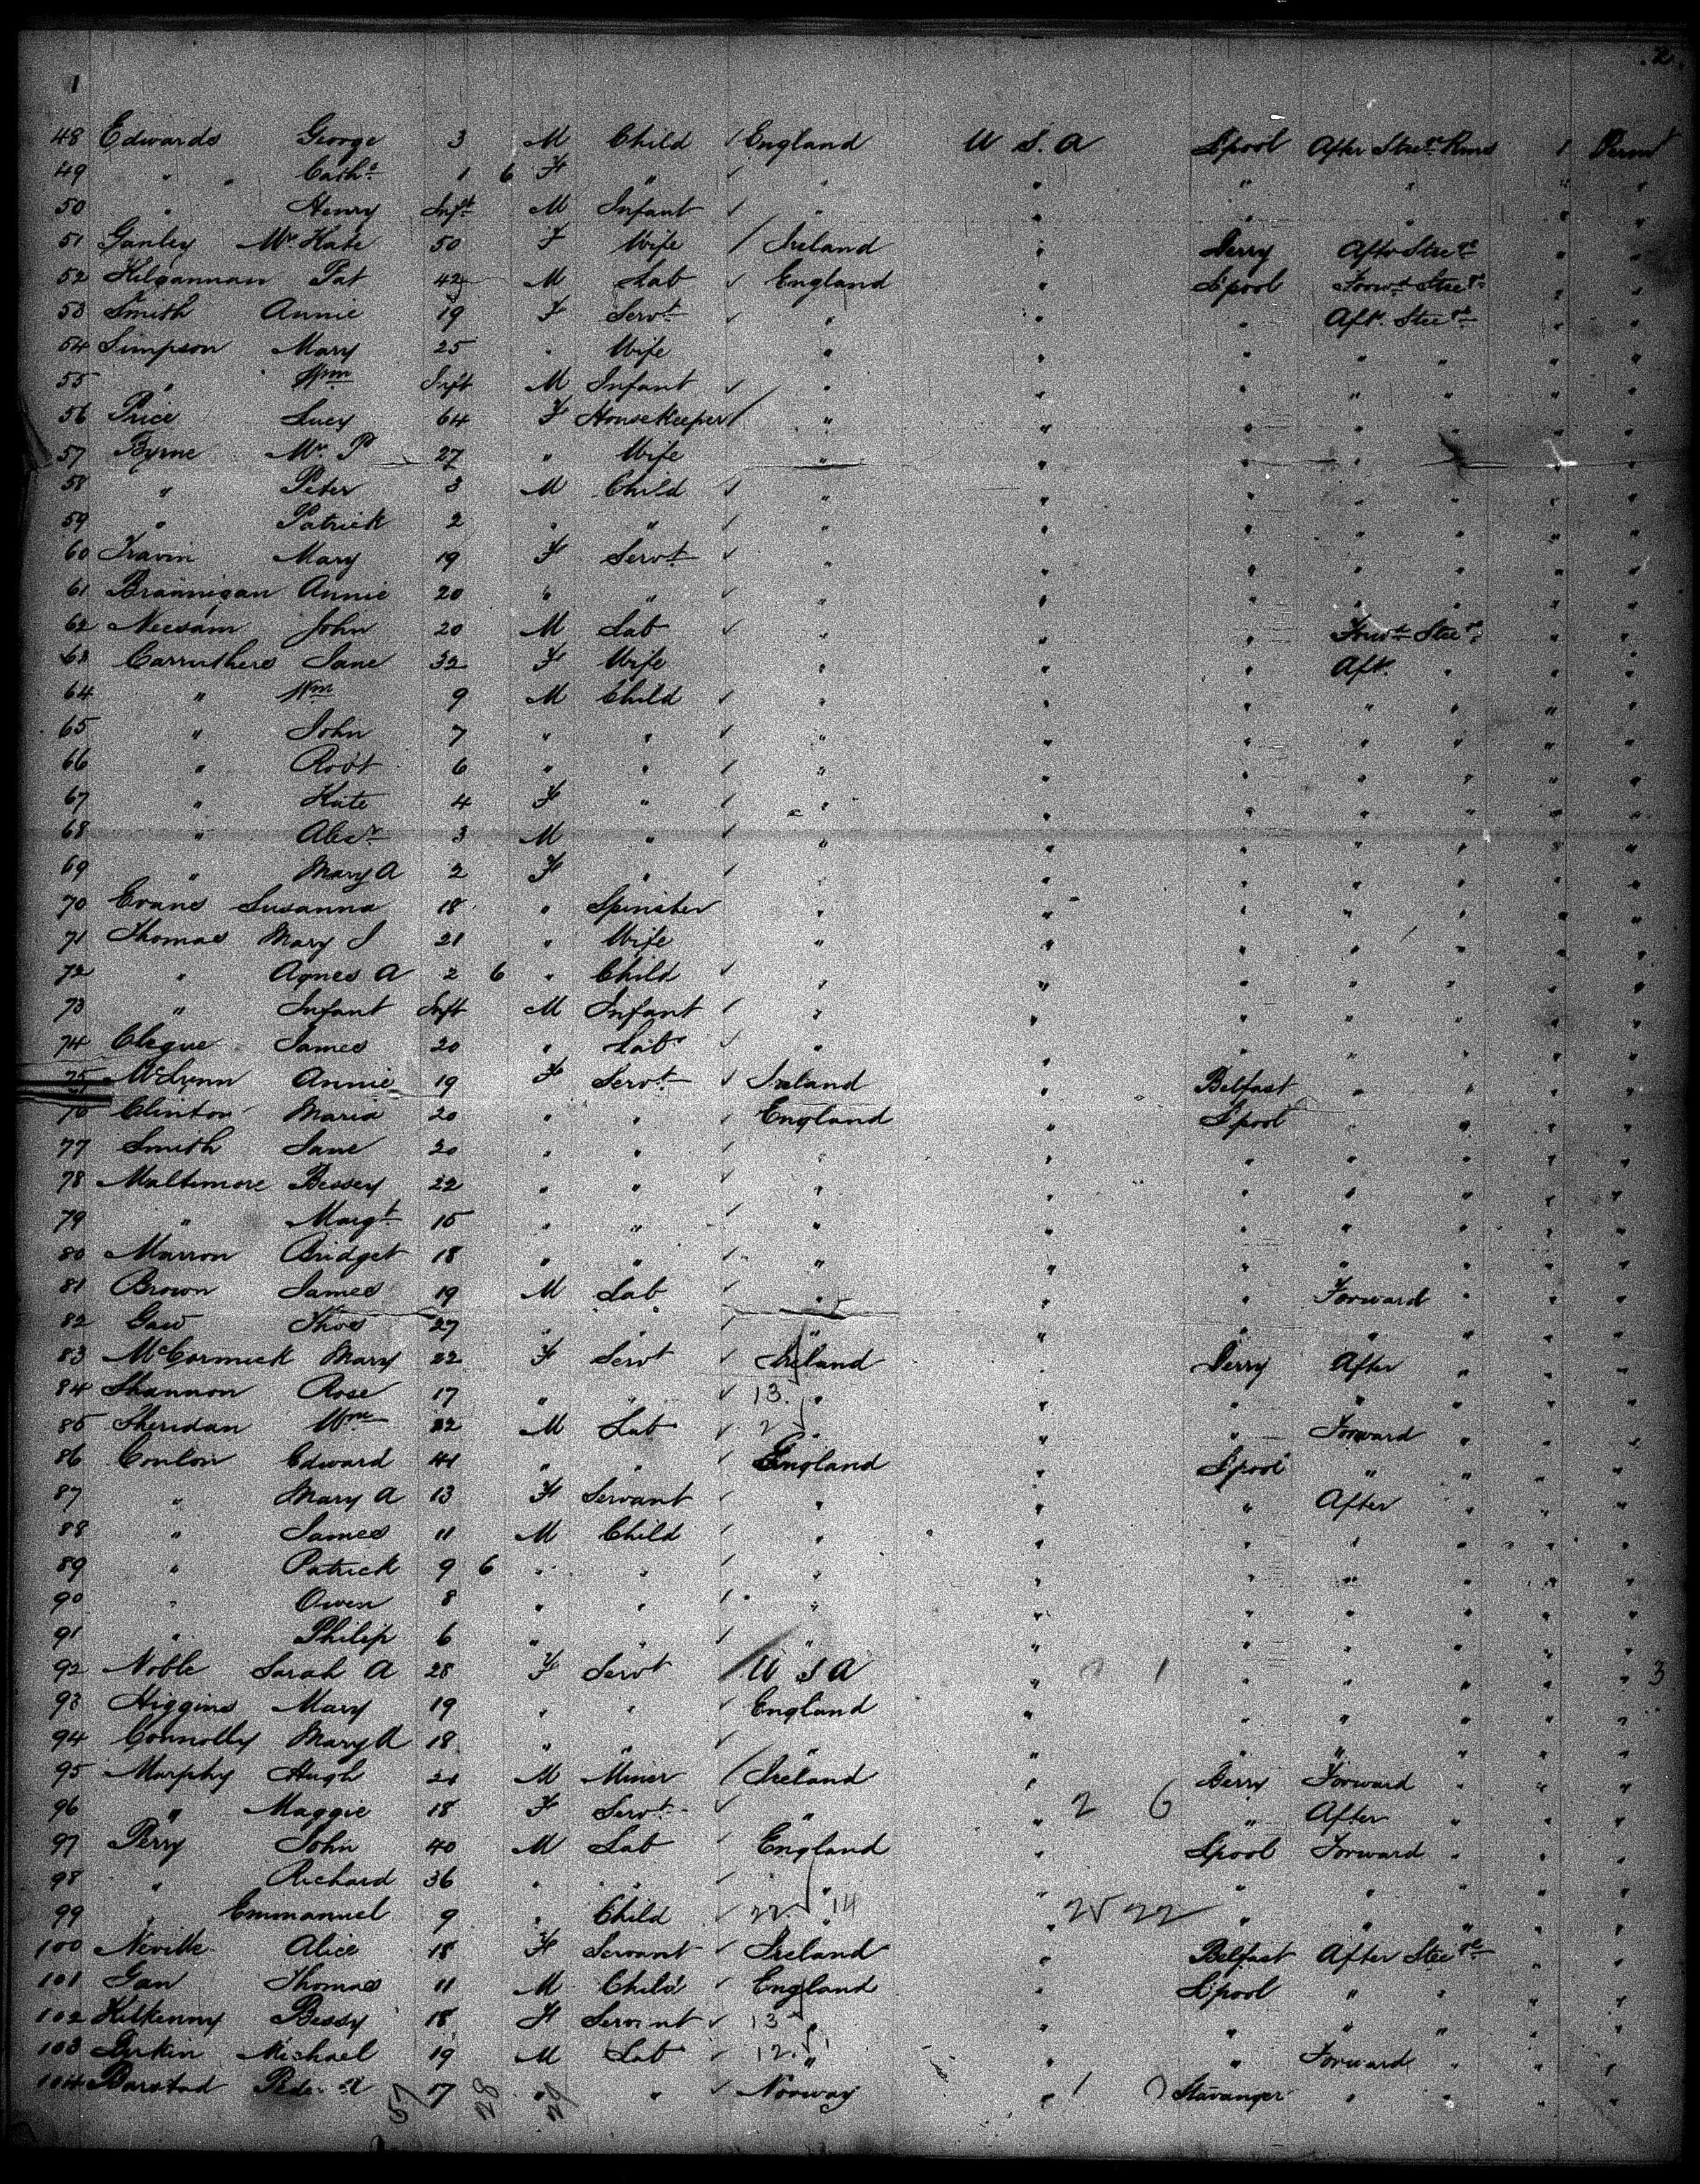 .2.
1
48 Edwards George 3 M Child / England U S. A L'pool After Stee Rms 1 Perm
49 " " Cath 1 6 F " / " " " " " "
50 " Henry Inft M Infant / " " " " " "
51 Ganley Mrs Kate 50 F Wife / Ireland " Derry After Stee " "
52 Kilgannan Pat 42 M Lab / England " L'pool Forwd Stee " "
53 Smith Annie 19 F Servt / " " " Aft. Stee " "
54 Simpson Mary 25 " Wife " " " " " " "
55 " Wm Inft M Infant / " " " " " " "
56 Price Lucy 64 F Housekeeper / " " " " " " "
57 Byrne Mrs P 27 " Wife " " " " " "
58 " Peter 3 M Child / " " " " " " "
59 " Patrick 2 " " / " " " " " " "
60 Travin Mary 19 F Servt / " " " " " " "
61 Brannigan Annie 20 " " / " " " " " " "
62 Neesam John 20 M Lab / " " " Forwd Stee " "
63 Carruthers Jane 32 F Wife " " " Aft. " " "
64 " Wm 9 M Child / " " " " " " "
65 " John 7 " " / " " " " " " "
66 " Robt 6 " " / " " " " " " "
67 " Kate 4 F " / " " " " " " "
68 " Alexr 3 M " / " " " " " " "
69 " Mary A 2 F " / " " " " " " "
70 Evans Susanna 18 " Spinster " " " " " " "
71 Thomas Mary J 21 " Wife " " " " " " "
72 " Agnes A 2 6 " Child / " " " " " " "
73 " Infant Inft M Infant / " " " " " " "
74 Clague James 20 " Lab / " " " " " " "
75 McLynn Annie 19 F Servt / Ireland " Belfast " " " "
76 Clinton Maria 20 " " / England " L'pool " " " "
77 Smith Jane 20 " " / " " " " " " "
78 Maltimore Bessey 22 " " / " " " " " " "
79 " Margt 15 " " " " " " " " "
80 Marron Bridget 18 " " / " " " " " " "
81 Brown James 19 M Lab / " " " Forward " " "
82 Gaw Thos 27 " " / " " " " " " "
83 McCormick Mary 22 F Servt / Ireland " Derry After " " "
84 Shannon Rose 17 " " / 13 " " " " " " "
85 Sheridan Wm 22 M Lab / 2 " " " Forward " " "
86 Conlon Edward 41 " " / England " L'pool " " " "
87 " Mary A 13 F Servant / " " " After " " "
88 " James 11 M Child / " " " " " " "
89 " Patrick 9 6 " " / " " " " " " "
90 " Owen 8 " " / " " " " " " "
91 " Philip 6 " " / " " " " " " "
92 Noble Sarah A 28 F Servt / U S A " 1 " " " " " 3
93 Higgins Mary 19 " " / England " " " " " "
94 Connolly Mary A 18 " " / " " " " " " "
95 Murphy Hugh 21 M Miner / Ireland " Derry Forward " " "
96 " Maggie 18 F Servt / " " 2 6 " After " " "
97 Perry John 40 M Lab / England " L'pool Forward " " "
98 " Richard 36 " " " " " " " " "
99 " Emmanuel 9 " Child / 22 14 " 25 22 " " " " "
100 Neville Alice 18 F Servant / Ireland " Belfast After Stee " "
101 Gan Thomas 11 M Child / England " L'pool " " " "
102 Kilkenny Bessy 18 F Servant / 13 " " " " " " "
103 Michael 19 M Lab / 12 " " " Forward " " "
104 Barstad 17 " " / Norway " 1 Stavanger " " " "
57 28 29